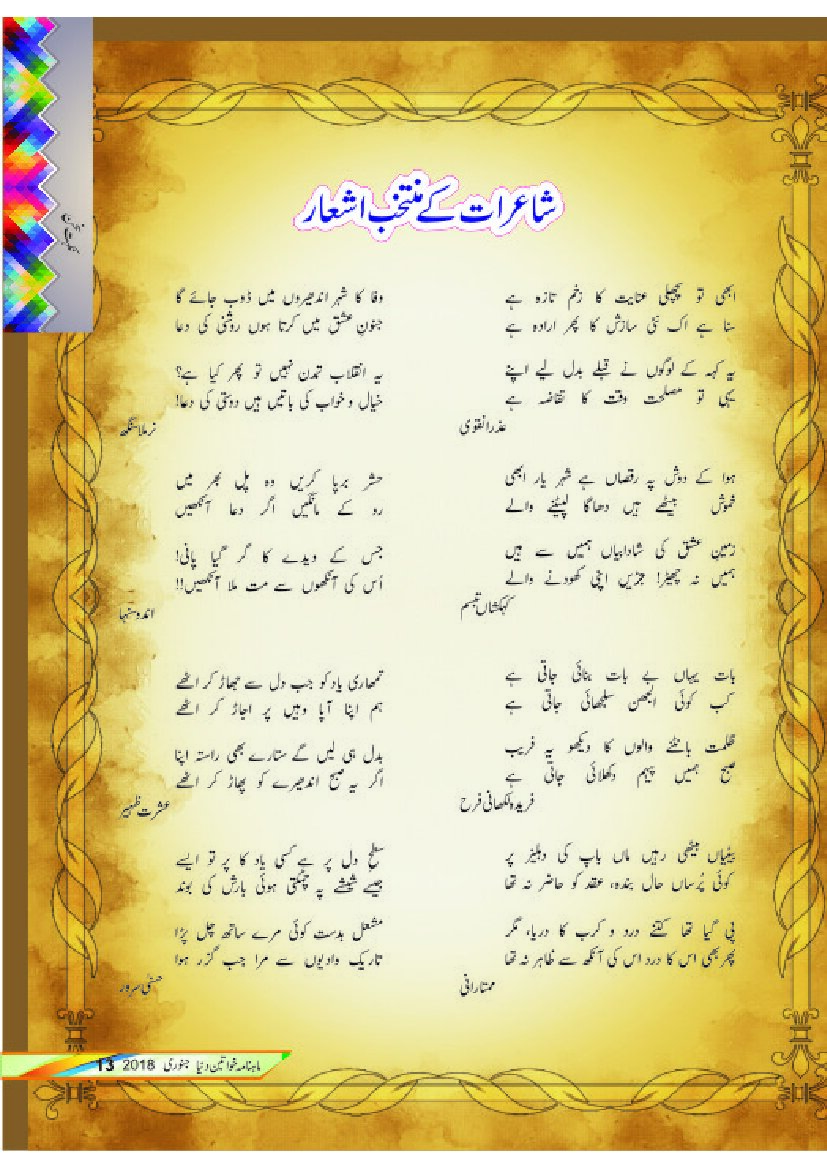 شاعرات کے منتخب اشعار
ابھی تو پچھلی عنایت کا زخم تازہ ہے
سنا ہے اک نئی سازش کا پھر ارادہ ہے
یہ کہہ کے لوگوں نے قبلے بدل لیے اپنے
یہی تو مصلحت وقت کا تقاضہ ہے
عذرا نقوی
ہوا کے دوش پہ رقصاں ہے شہر یار ابھی
خموش بیٹھے ہیں دھاگا لپیٹنے والے
زمین عشق کی شادابیاں ہمیں سے ہیں
ہمیں نہ چھیڑ! جڑیں اپنی کھودنے والے
کہکشاں تبسم
بات یہاں بے بات بنائی جاتی ہے
کب کوئی الجھن سلجھائی جاتی ہے
ظلمت بانٹنے والوں کا دیکھو یہ فریب
صبح ہمیں پیہم دکھلائی جاتی ہے
فریدہ لکھانی فرح
بیٹیاں بیٹھی رہیں ماں باپ کی دہلیز پر
کوئی پُرساں حال بندہ، عقد کو حاضر نہ تھا
پی گیا تھا کتنے درد و کرب کا دریا، مگر
پھر بھی اس کا درد اس کی آنکھ سے ظاہر نہ تھا
ممتا رانی
وفا کا شہر اندھیروں میں ڈوب جائے گا
جنونِ عشق میں کرتا ہوں روشنی کی دعا
یہ انقلاب تمدن نہیں تو پھر کیا ہے؟
خیال و خواب کی باتیں ہیں دوستی کی دعا!
نرملا سنگھ
حشر برپا کریں وہ پل بھر میں
رو کے مانگیں اگر دعا آنکھیں
جس کے دیدے کا گر گیا پانی!
اُس کی آنکھوں سے مت ملا آنکھیں!!
اندو سنہا
تمھاری یاد کو جب دل سے جھاڑ کر اٹھے
ہم اپنا آپا وہیں پر اجاڑ کر اٹھے
بدل ہی لیں گے ستارے بھی راستہ اپنا
اگر یہ صبح اندھیرے کو پھاڑ کر اٹھے
عشرت ظہیر
سطح دل پر ہے کسی یاد کا پر تو ایسے
جیسے شیشے پہ چمکتی ہوئی بارش کی بوند
مشعل بدست کوئی مرے ساتھ چل پڑا
تاریک وادیوں سے مرا جب گزر ہوا
حسنیٰ سرور
ماہنامہ خواتین دنیا جنوری 2018 13